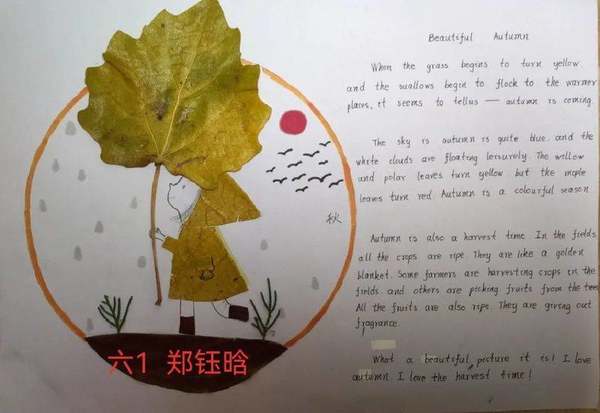 Beautiful Autumn
When the grass begins to turn yellow.
and the swallows begin to flock to the warmer
places, it seems to tellus — autumn is coming.
The sky is autumn is quite blue. and the
white clouds are floating leisurely. The willow
and polar leaves turn yellow but the maple
leaves turn red Autumn is a colourful season
Autumn is also a harvest time. In the fields
all the crops are ripe They are like a golden
blanket. Some farmers are harvesting crops in the
fields and others are picking fruits from the tree
All the fruits are also rips. They are giving out
fragrance.
What a beautiful picture it is! I love
autumn I love the harvest time!
秋
六1 郑钰晗